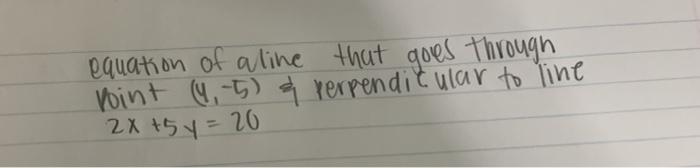 equation of a line that goes through
point (4,-5) & perpendicular to line
2x +5y = 20